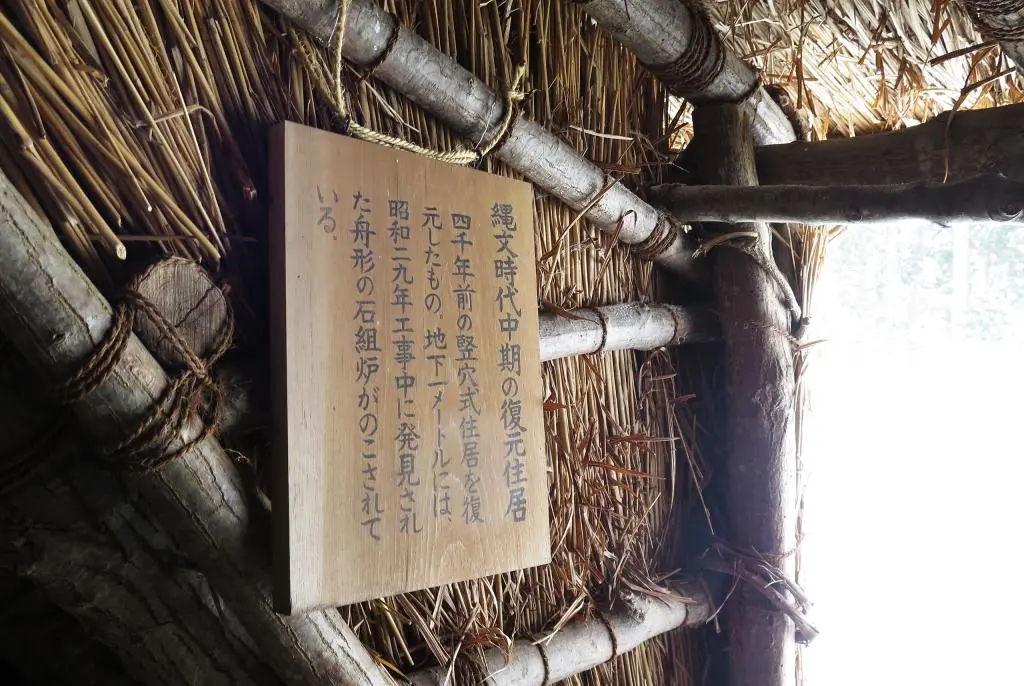 縄文時代中期の復元住居
四千年前の竪穴式住居を復
元したもの。地下一メートルには、
昭和二九年工事中に発見され
た舟形の石組炉がのこされて
いる。